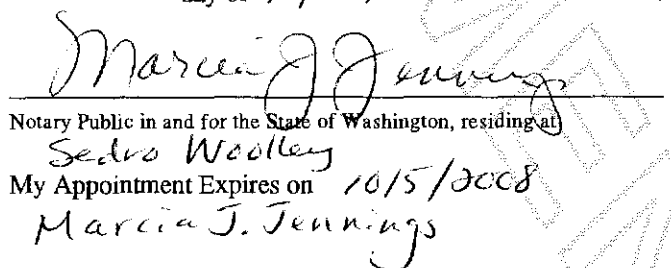 Marcia J Jennings
Notary Public in and for the State of Washington, residing at
Sedro Woolley
My Appointment Expires on 10/5/2008
Marcia J. Jennings